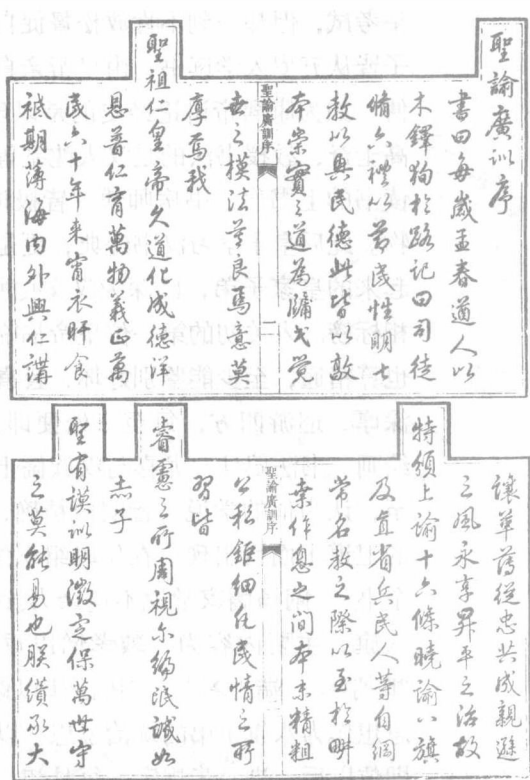 聖諭廣訓序
書曰每歲孟春遒人以
木鐸徇於路記曰司徒
脩六禮以節民性明七
教以興民德此皆以敦
本崇實之道為牖民覺
聖諭廣訓序
一
世之模法莫良焉意莫
厚焉我
聖祖仁皇帝久道化成德洋
恩普仁育萬物義正萬
民六十年來宵衣旰食
祗期薄海內外興仁講
讓革薄從忠共成親遜
之風永享昇平之治故
特頒上諭十六條曉諭八旗
及直省兵民人等自綱
常名教之際以至於畊
桑作息之間本末精粗
聖諭廣訓序
公私鉅細凡民情之所
習皆
睿慮之所周視爾編氓誠如
赤子
聖有謨訓明徵定保萬世守
之莫能易也朕纘承大